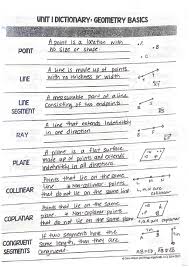 UNIT 1 DICTIONARY: GEOMETRY BASICS
POINT
A point is a location with
no size or shape
LINE
A line is made up of points
with no thickness or width
LINE
SEGMENT
A measurable part of a line
Consisting of two endpoints
RAY
A line that extends indefinitely
in one direction
PLANE
A plane is a flat surface
made up of points and extends
indefinitely in all directions
COLLINEAR
Points that lie on the same
line * Non-collinear points
that do not lie on the same
line
COPLANAR
Points that lie on the same
plane * Non-Coplanar points
that do not lie on the same
plane
CONGRUENT
SEGMENTS
If two segments have the
same length, than they are
Congruent.